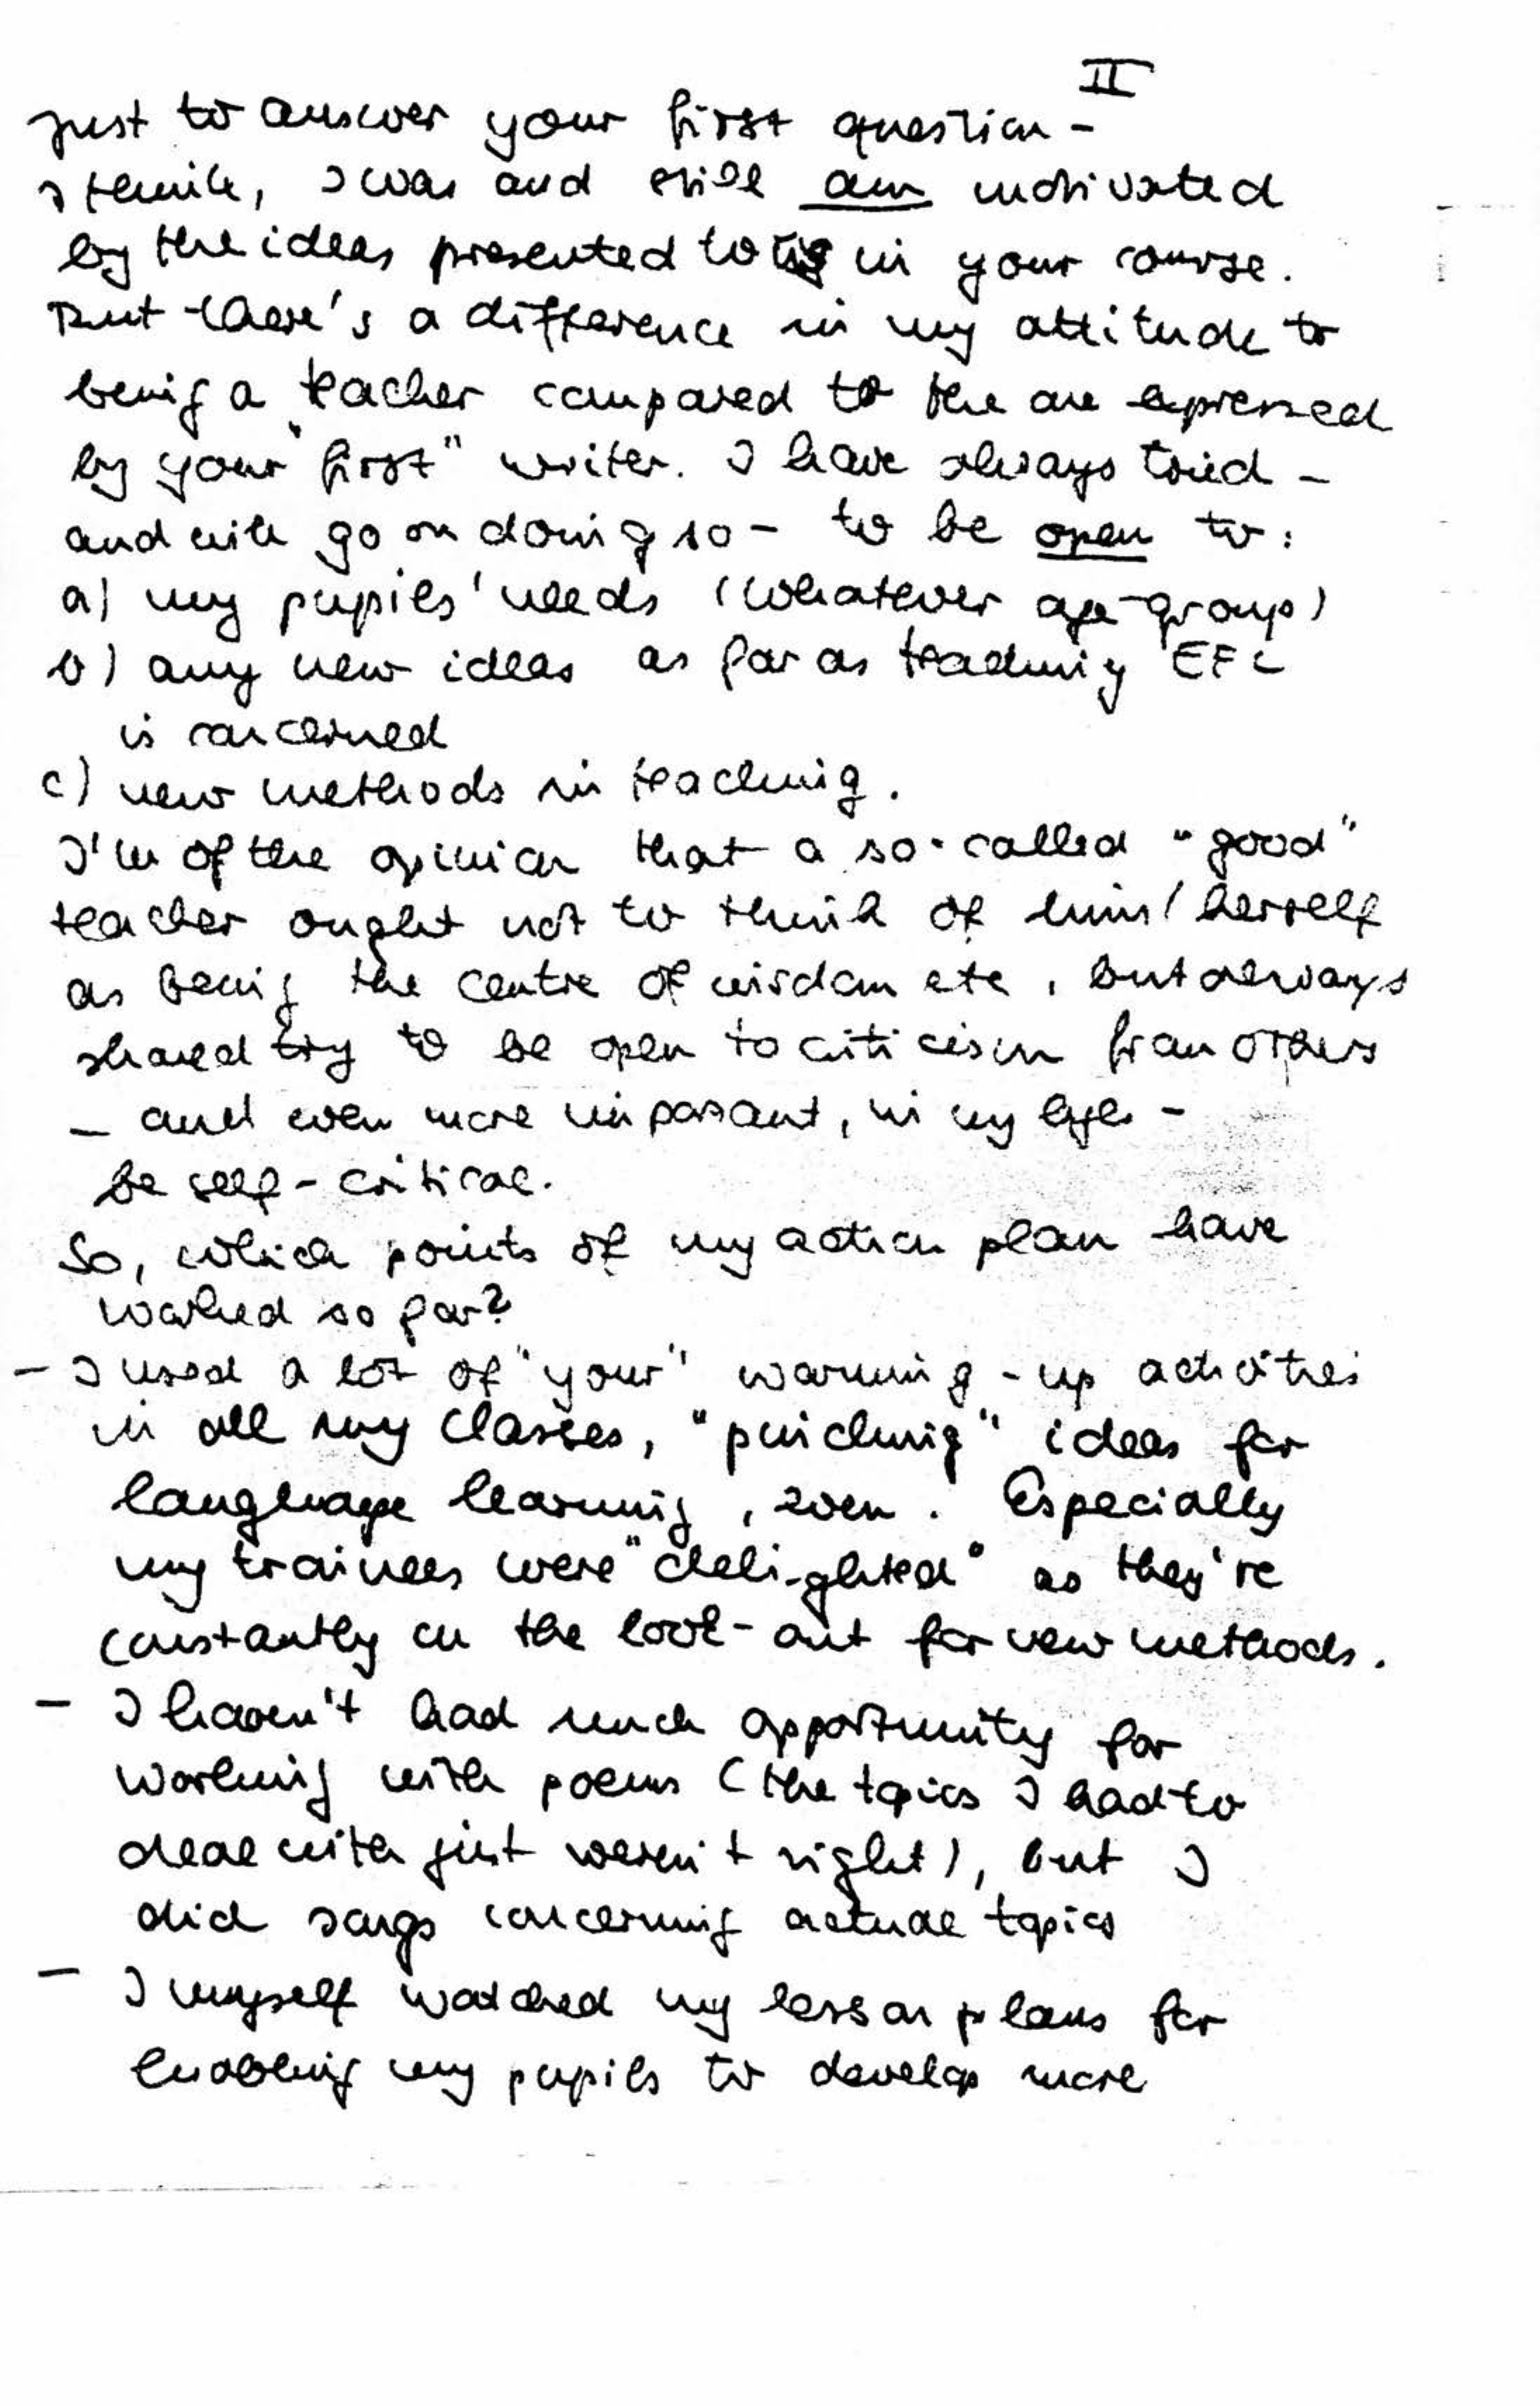 II
Just to answer your first question -
I think, I was and still am motivated
by the ideas presented to us in your course.
But there's a difference in my attitude to
being a teacher compared to the one expressed
by your "first" writer. I have always tried -
and will go on doing so - to be open to:
a) my pupils' needs (whatever age-group)
b) any new ideas as far as teaching EFL
is concerned
c) new methods in teaching.
I'm of the opinion that a so-called "good"
teacher ought not to think of him/herself
as being the centre of wisdom etc, but always
should try to be open to criticism from others
- and even more important, in my eyes -
be self-critical.
So, which points of my action plan have
worked so far?
- I used a lot of "your" warming-up activities
in all my classes, "pinching" ideas for
language learning, even. Especially
my trainees were "delighted" as they're
constantly on the look-out for new methods.
- I haven't had much opportunity for
working with poems (the topics I had to
deal with just weren't right), but I
did songs concerning actual topics
- I myself watched my lesson plans for
enabling my pupils to develop more